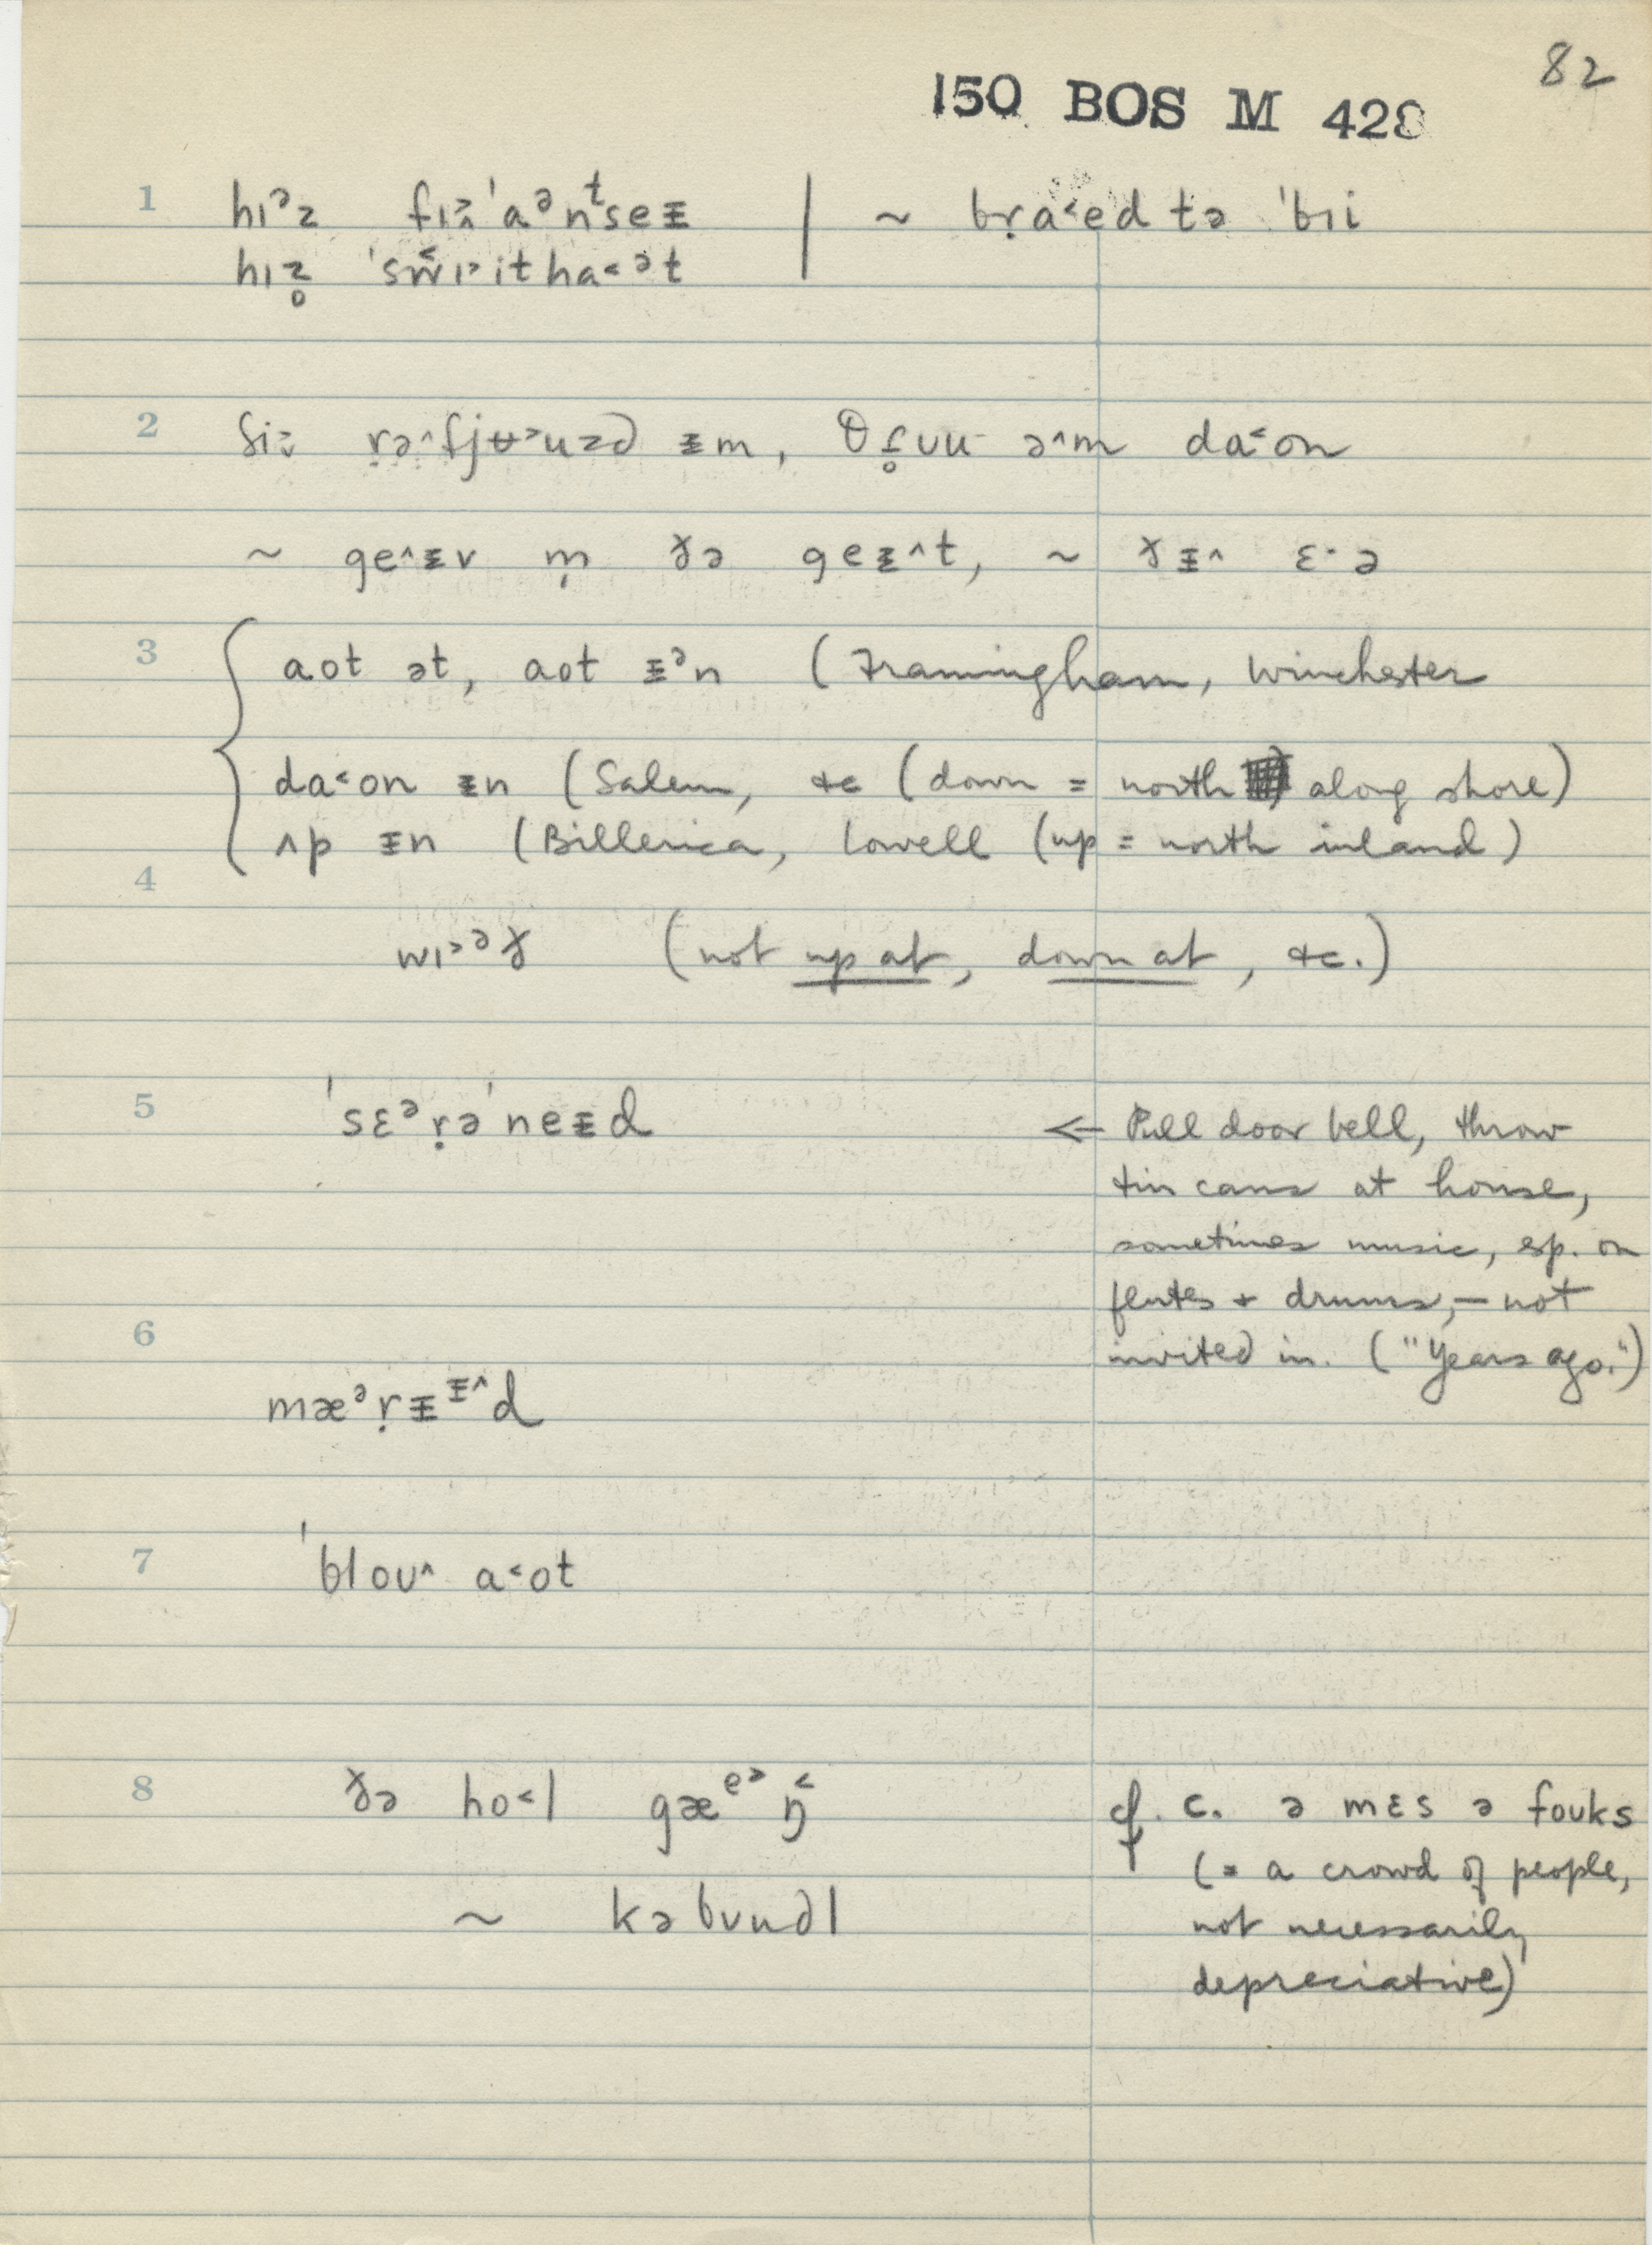 82
150 BOS M 428
1 hɪᵊz fɪ˃ˈaᵊnᵗseᵻ | ~ bṛa˂ed tə ˈbɪi
hɪz̥ ˈsw̌ɪ˃itha˂ᵊt
2 ʃi˃ ṛə^fjʉ˃uzd ᵻm, θf̥ɹuu ə^m da˂on
~ ge^ᵻv m̩ ðə geᵻ^t, ~ ðᵻ^ ɛ·ə
3 { aot ət, aot ᵻᵊn (Framingham, Winchester
da˂on ᵻn (Salem, &c (down = north along shore)
ʌp ᵻn (Billerica, Lowell (up = north inland)
4
wɪ˃ᵊð (not up at, down at, &c.)
5 ˈsɛᵊṛəˈneᵻd ← Pull door bell, throw
tin cans at house,
sometimes music, esp. on
flutes + drums, — not
6 invited in. ("Years ago.")
mæᵊṛᵻᵻ^d
7 ˈbloʊ^ a˂ot
8 ðə ho˂l gæᵉ˃ŋ˂ cf. c. ə mɛs ə foʊks
(= a crowd of people,
~ kəbundl not necessarily
depreciative)